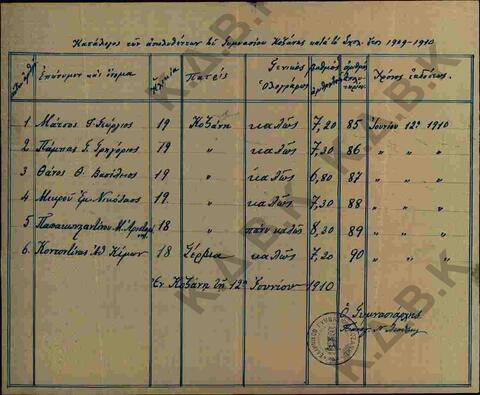 Κατάλογος τῶν ἀπολυθέντων τοῦ Γυμνασίου Κοζάνης κατὰ τὸ Σχολ. ἔτος 1909-1910
Ἐπώνυμον καὶ ὄνομα Ἡλικία Πατρὶς Γενικὸς Ὁλογράφως βαθμὸς ἀριθμὸς Χρόνος ἐκδόσεως
1 Μάτσος Γεώργιος 19 Κοζάνη καλῶς 7,20 85 Ἰουνίου 12ῃ 1910
2 Πάμπας Γ. Γρηγόριος 19 " καλῶς 7,30 86 " " "
3 Θάνος Θ. Βασίλειος 19 " καλῶς 6,80 87 " " "
4 Νικόλαος 19 " καλῶς 7,30 88 " " "
5 Παπακωνσταντίνου Μ. 18 " πάνυ καλῶς 8,30 89 " " "
6 Κίμων 18 Σέρβια καλῶς 7,20 90 " " "
Ἐν Κοζάνῃ τῇ 12ῃ Ἰουνίου 1910
Ὁ Γυμνασιάρχης
Κ.Δ.Β.Κ